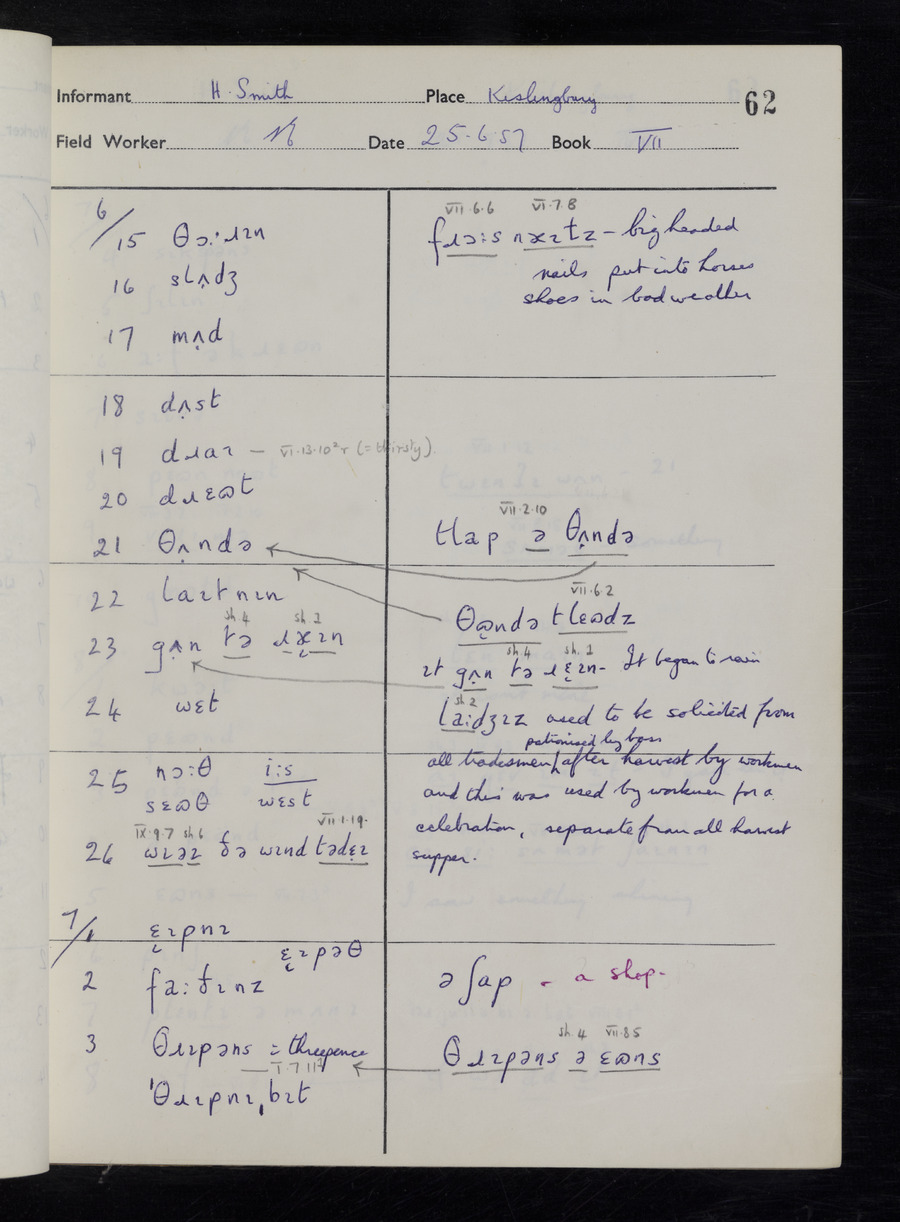 Informant H. Smith Place Kislingbury 62
Field Worker Date 25·6·57 Book VII
6/15 θɔ:·ɹɪn
16 slʌ̣dʒ
17 mʌ̣d
18 dʌ̣st
19 dɹaɪ – VI·13·10²r (= thirsty)
20 dɹɛɷt
21 θʌ̣ndə
22 laɪtnɪn
sh.4 sh.1
23 gʌ̣n tə ɹæ̣ɪn
24 wɛt
25 nɔ:θ i:s
sɛɷθ wɛst
IX·9·7 sh6 VII·1·19·
26 wɪəɪ ðə wɪnd tədɛ̣ɪ
7/1 ɛ̣ɪpnɪ
ɛ̣ɪpəθ
2 fa:ðɪnz
3 θɹɪpəns = threepence
V·7·11
ˈθɹɪpnɪˌbɪt
VII·6·6 VI·7·8
fɹɔ:s næɪtz – big headed
nails put into horses
shoes in bad weather
VII·2·10
tlap ə θʌ̣ndə
VII·6·2
θɷ̣ndə tlɛɷdz
sh.4 sh.1
ɪt gʌ̣n tə ɹɛ̣ɪn – It began to rain
sh 2
la:dʒɪz used to be solicited from
patronised by boss
all tradesmen after harvest by workmen
and this was used by workmen for a
celebration, separate from all harvest
supper.
ə ʃap – a shop.
sh.4 VII·8·5
θɹɪpəns ə ɛɷns